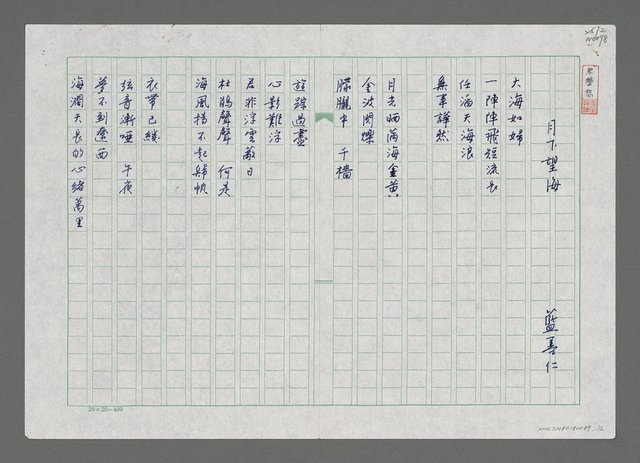 2572
月下望海
藍善仁
大海如婦
一陣陣飛短流長
任滿天海浪
無事譁然
月光晒滿海金黃
金波閃爍
朦朧中 千檣
遊蹤過盡
心影難浮
君非浮雲蔽日
杜鵑聲聲 何是
海風揚不起歸帆
衣帶已
弦音漸啞 午夜
夢不到遼西
海濶天長的心緒萬里
20×20=400